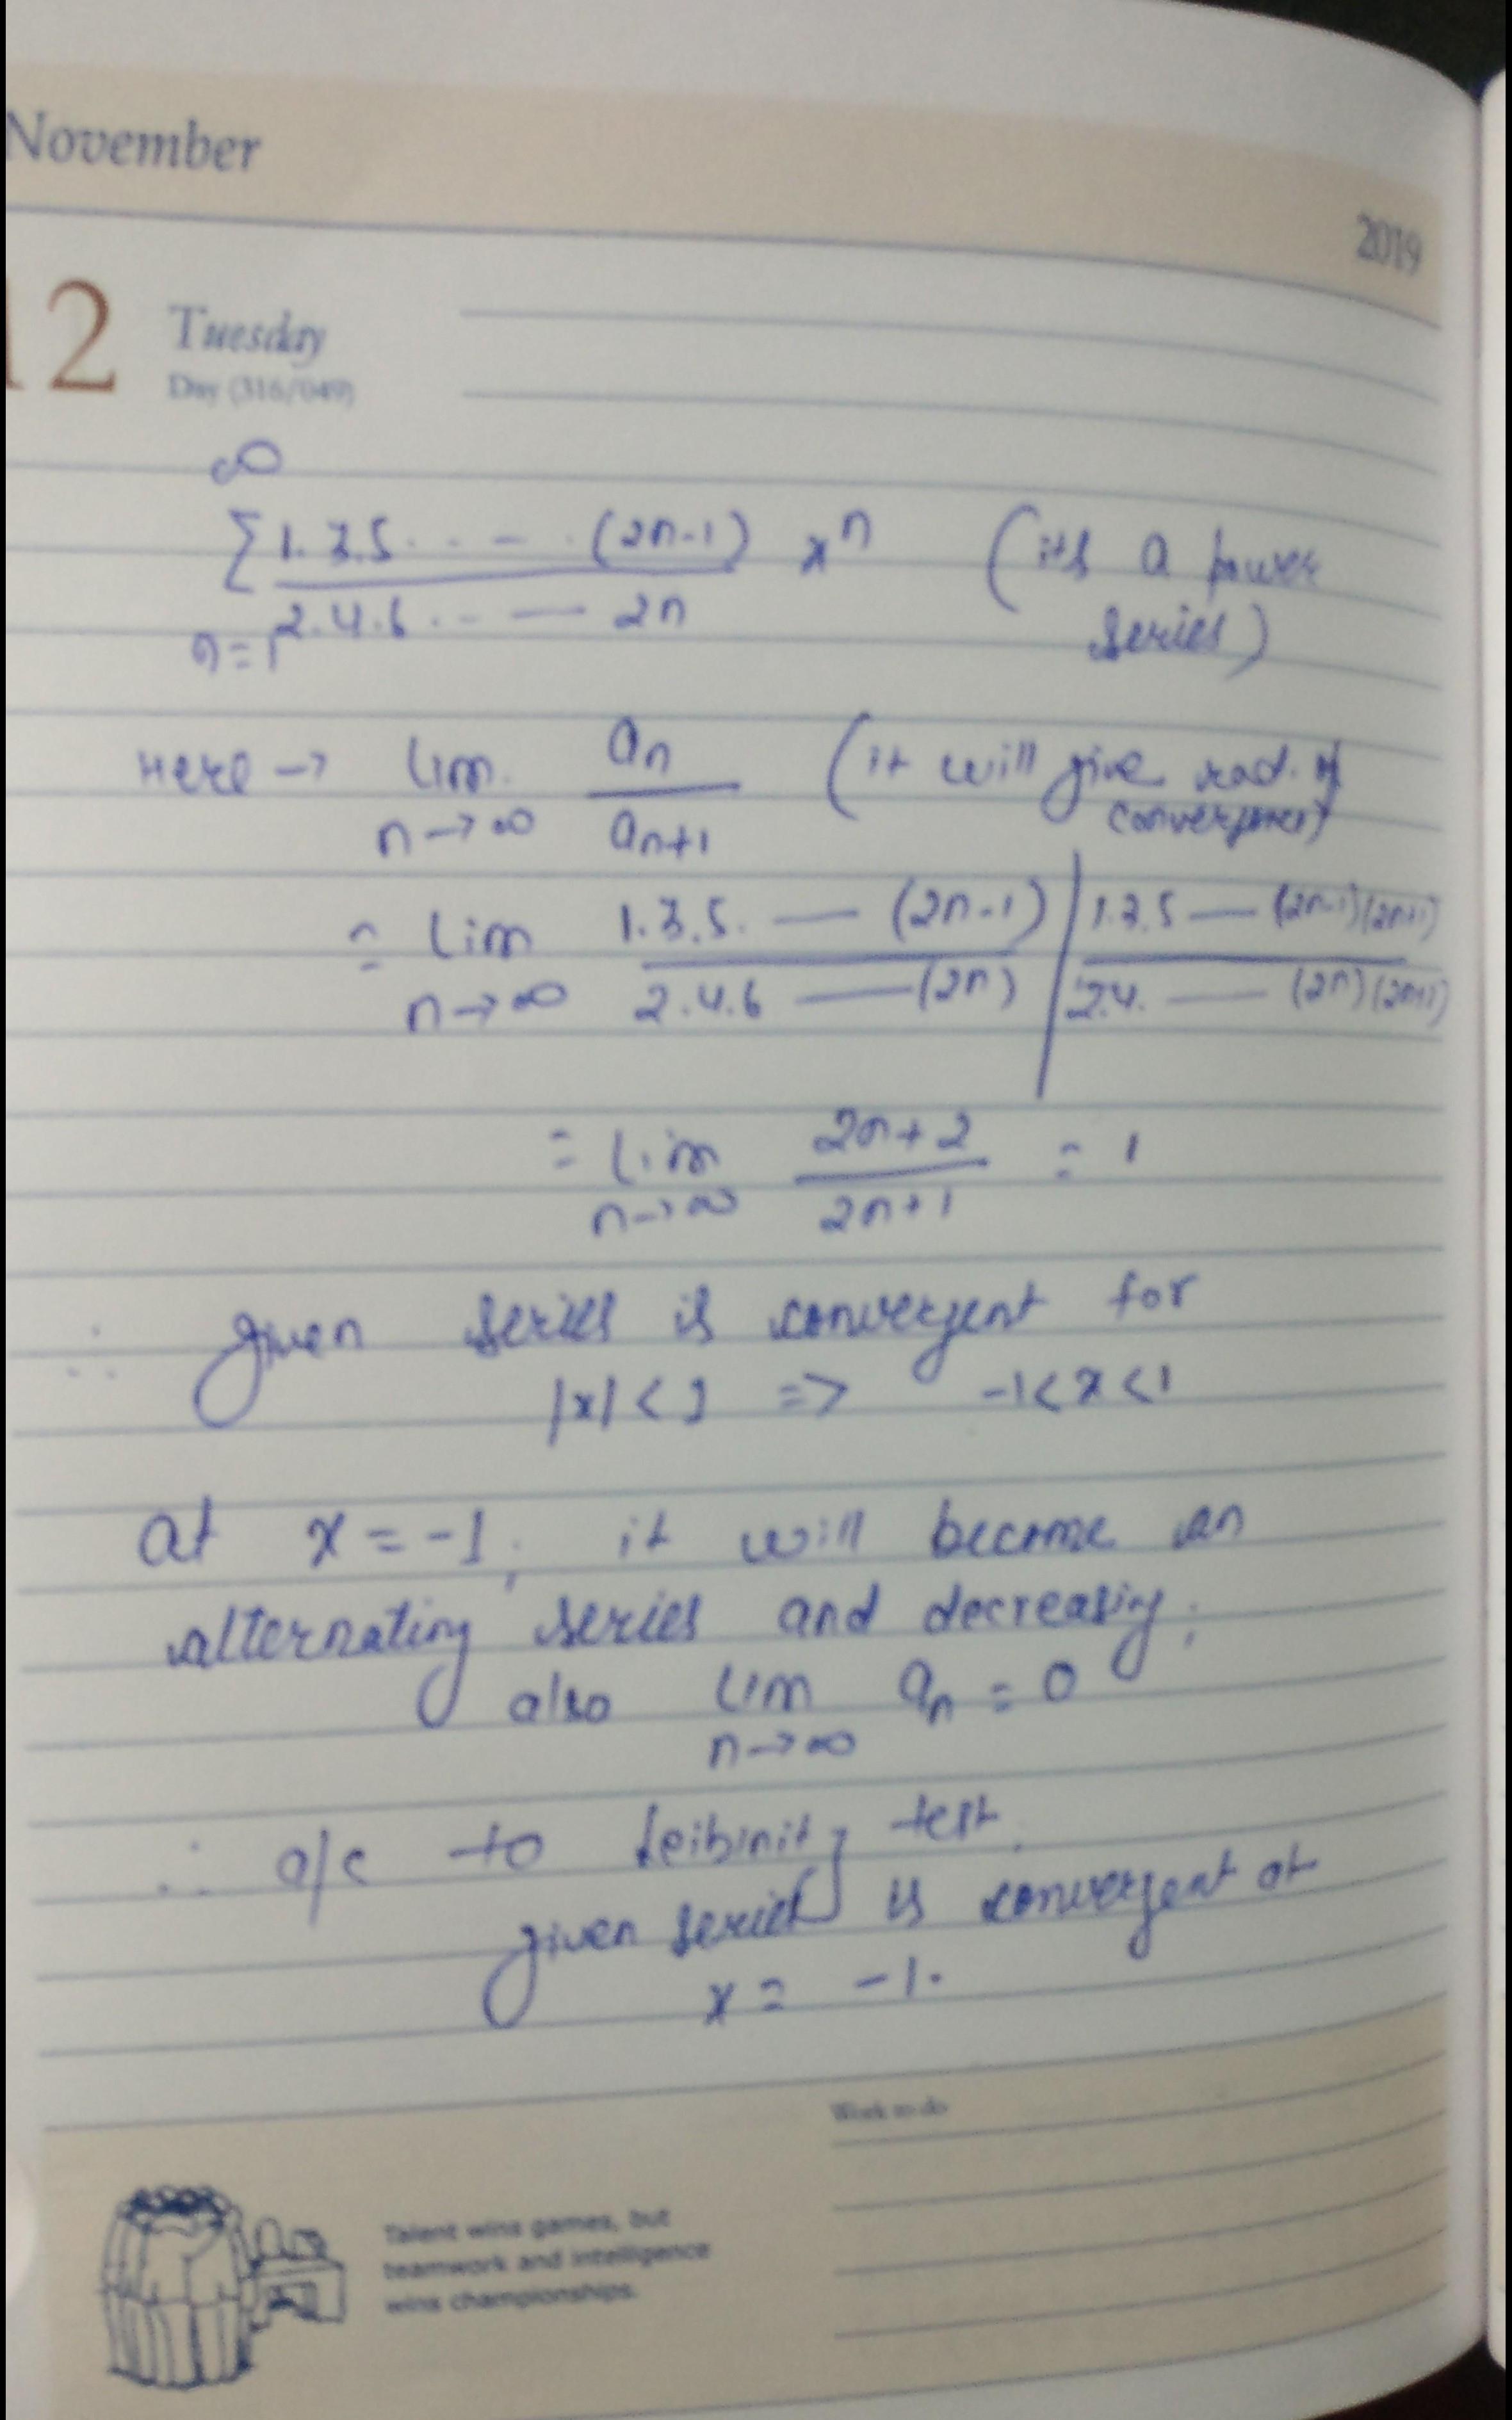 November
2019
12 Tuesday
Day (316/049)
∞
Σ 1.3.5. . . – . (2n-1) x^n (its a power
2.4.6 . . . — 2n series)
n=1
Here → Lim. an (it will give rad. of
n→∞ an+1 convergence)
= Lim 1.3.5. — (2n-1) / 1.3.5 — (2n-1)(2n+1)
n→∞ 2.4.6 — (2n) / 2.4. — (2n)
= Lim 2n+2 = 1
n→∞ 2n+1
∴ given series is convergent for
|x| < 1 => -1<x<1
at x = -1, it will become an
alternating series and decreasing,
also Lim an = 0
n→∞
∴ a/c to Leibinitz test,
given series is convergent at
x = -1.
Work to do
Talent wins games, but
teamwork and intelligence
wins championships.